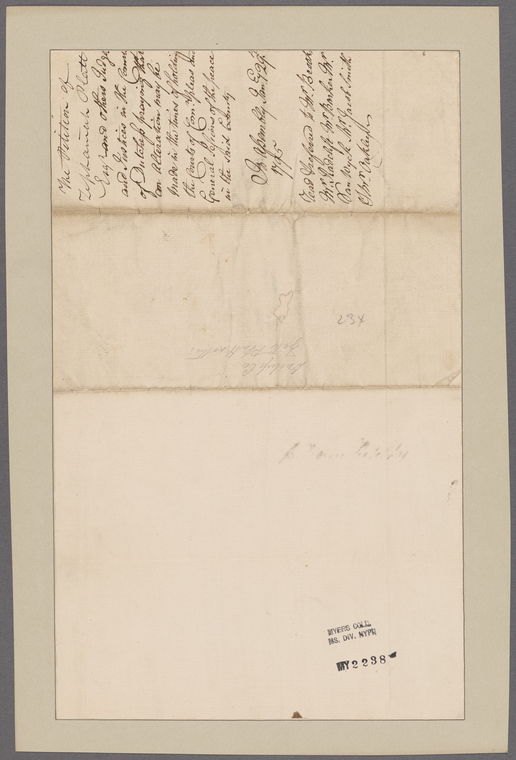 The Petition of
Zephaniah Platt
Esqr. and others Judges
and Justices in the County
of Dutchess praying that
an Alteration may be
made in the times of holding
the Courts of Com. Pleas and
General Sessions of the peace
in the said County
In Assembly Jany 29th
1785
read & referred to Mr. Brett
Mr. Dr. Radcliff Mr. Parker Mr.
Van Wyck Mr. Jacob Smith
& Mr. Oakley
234
MYERS COLL.
MS. DIV. NYPL
MY2238